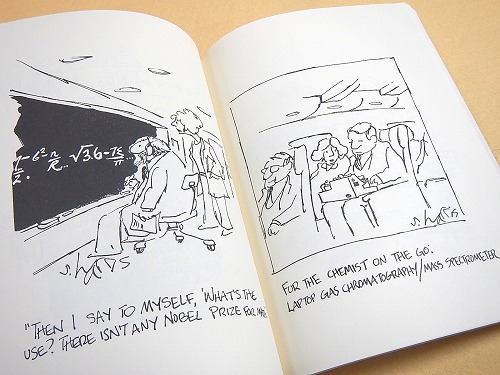 √3.6 -
S. HARRIS
"THEN I SAY TO MYSELF, 'WHAT'S THE
USE? THERE ISN'T ANY NOBEL PRIZE FOR
S. HARRIS
FOR THE CHEMIST ON THE GO:
LAPTOP GAS CHROMATOGRAPHY/MASS SPECTROMETER